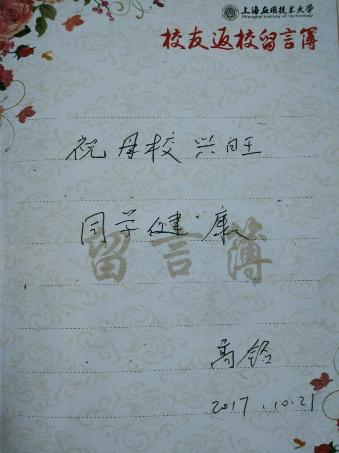 上海应用技术大学
Shanghai Institute of Technology
校友返校留言簿
祝母校兴旺
同学健康
留言簿
高铭
2017.10.21